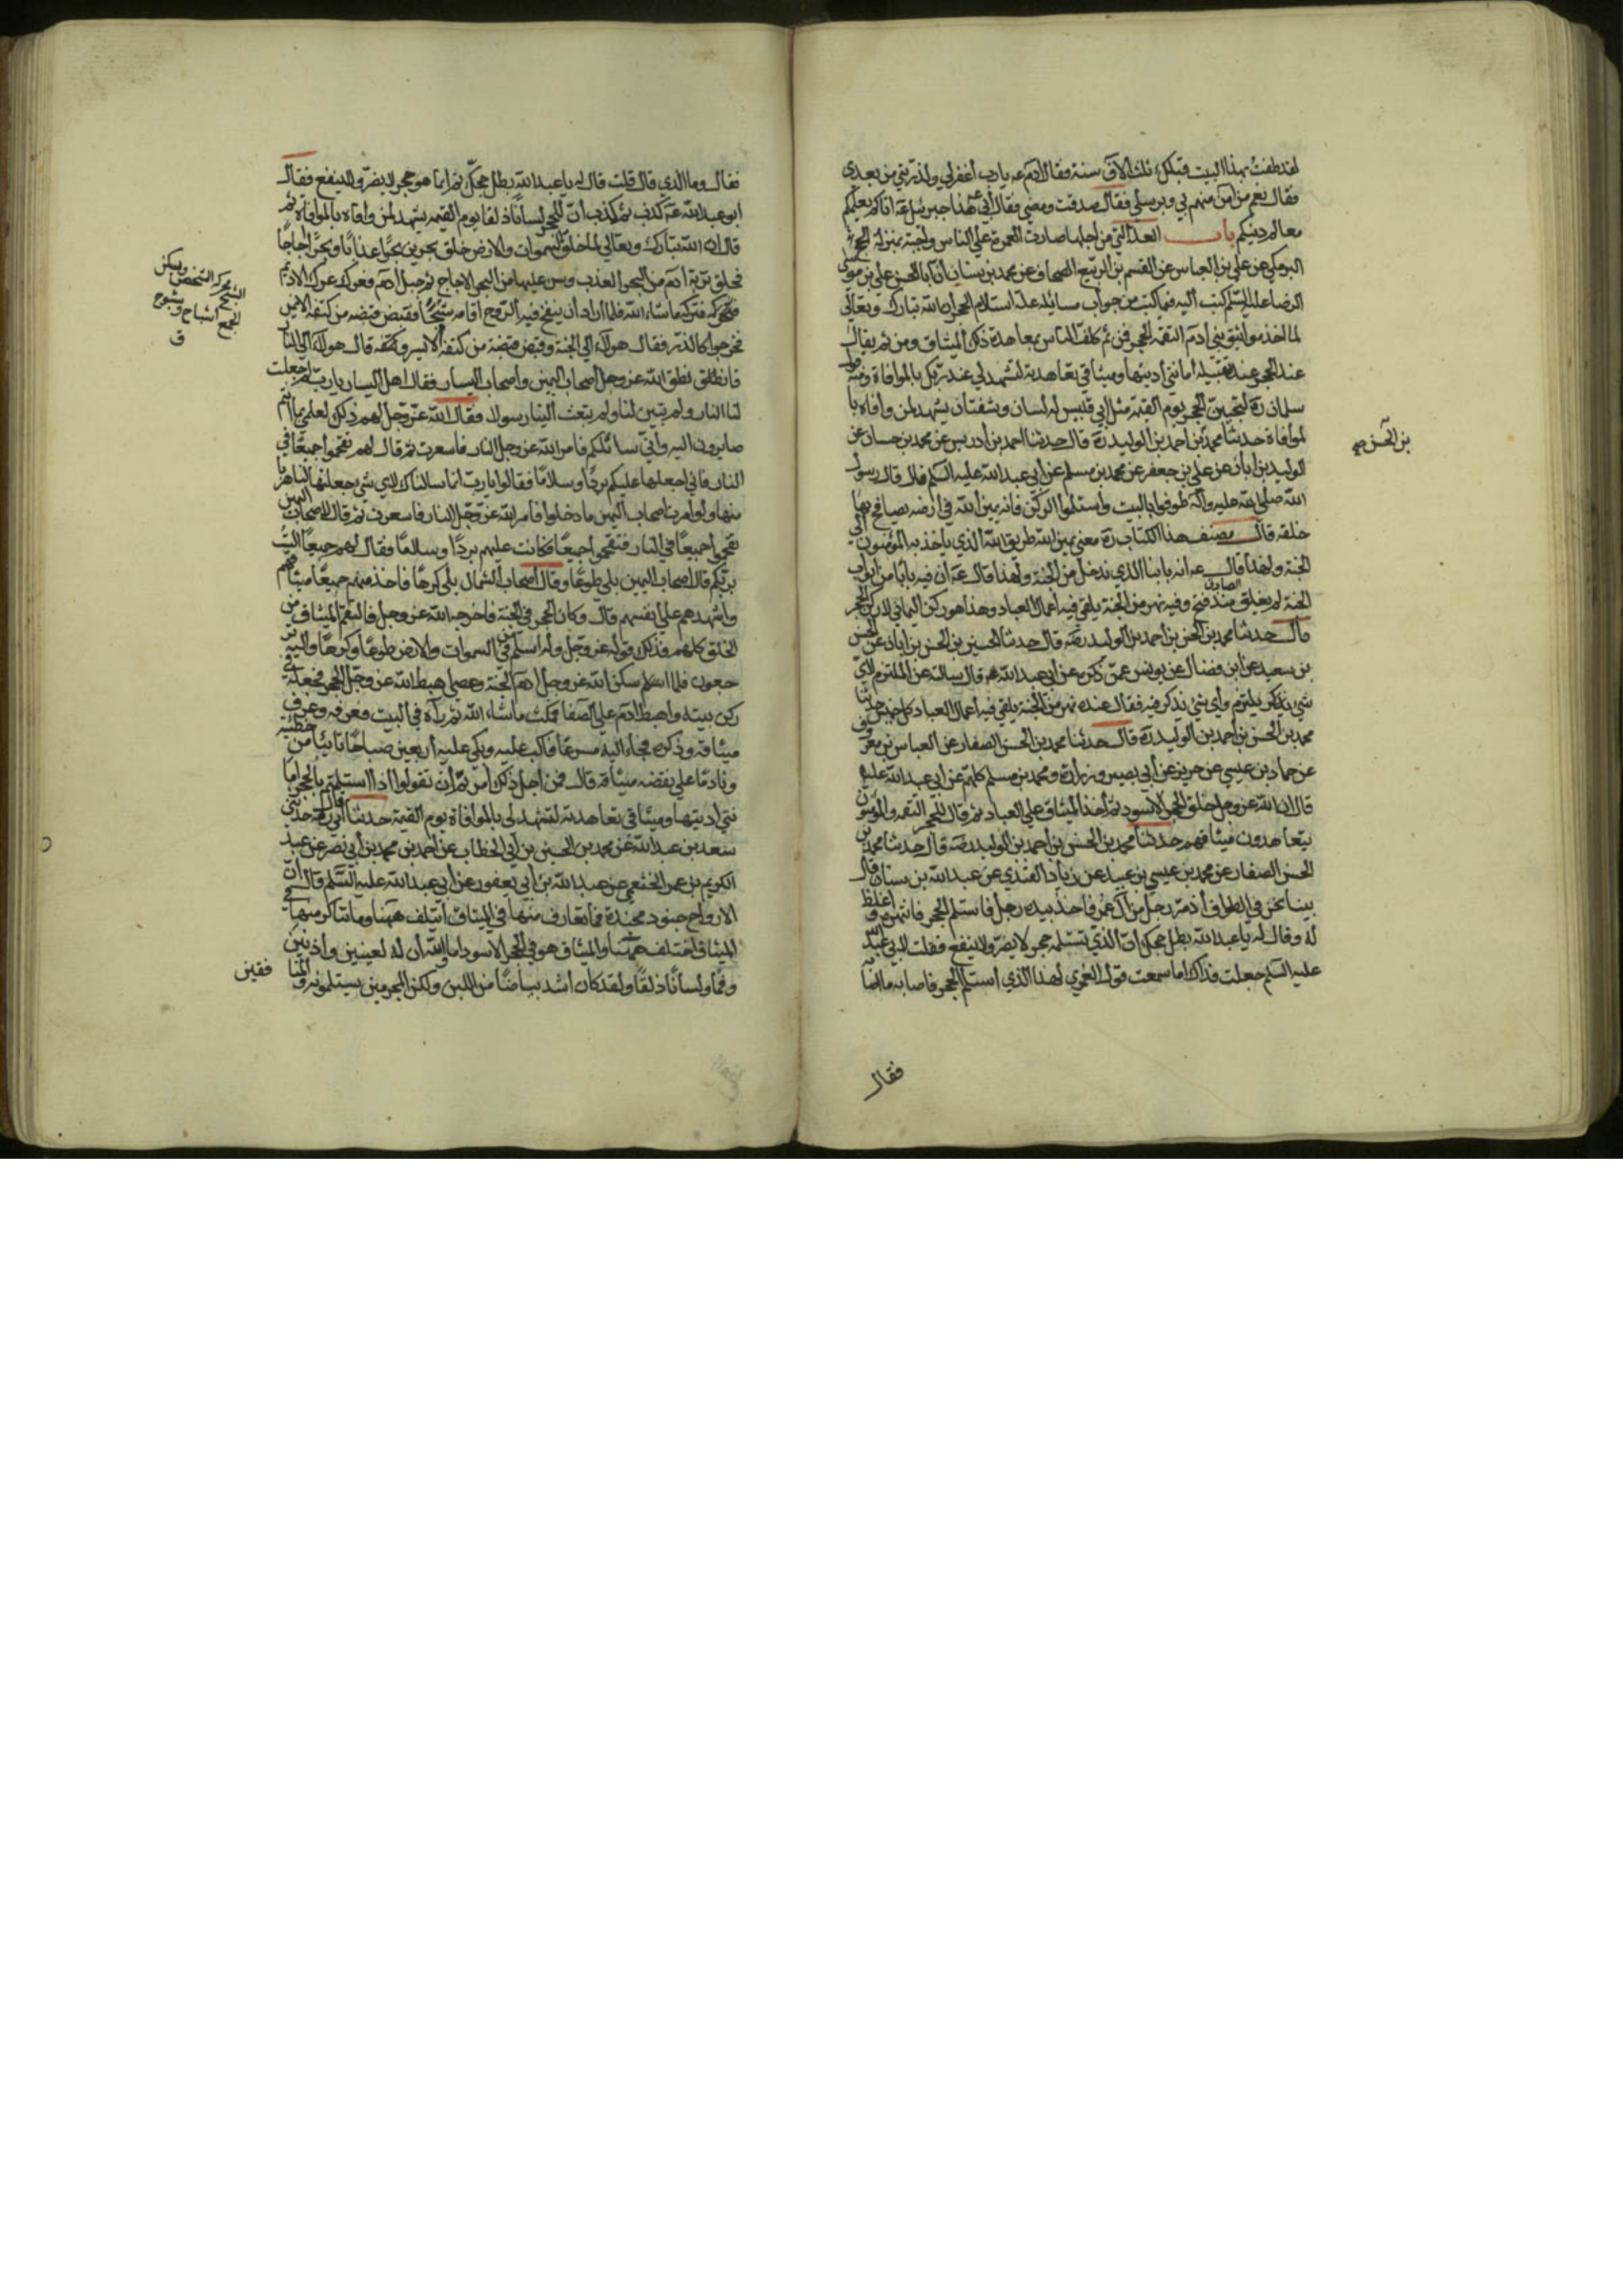 لقد طفت بهذا البيت قبلك ثلث الاف سنة فقال ادم عه يا رب اغفر لي ولذريتي من بعدي
فقال نعم من امن منهم بي وبرسلي فقال صدقت ومضى فقال ابي عه هذا جبرئيل عه اتاكم يعلمكم
معالم دينكم باب العلة التي من اجلها صارت العمرة على الناس واجبة بمنزلة الحج
البرمكي عن علي بن العباس عن القسم بن الربيع الصحاف عن محمد بن سنان ان ابا الحسن علي بن موسى
الرضا عليه السلم كتب اليه فيما كتب من جواب مسايله علة استلام الحجر ان الله تبارك وتعالى
لما اخذ مواثيق بني ادم التقمه الحجر فمن ثم كلف الناس بمعاهدة ذلك الميثاق ومن ثم يقال
عند الحجر امانتي اديتها وميثاقي تعاهدته لتشهد لي عند ربك بالموافاة ومنه قول
سلمان ره ليجيئن الحجر يوم القيمة مثل ابي قبيس له لسان وشفتان يشهد لمن وافاه با
لموافاة حدثنا محمد بن احمد بن الوليد ره قال حدثنا احمد بن ادريس عن محمد بن حسان عن
بن الحسن صح
الوليد بن ابان عن علي بن جعفر عن محمد بن مسلم عن ابي عبد الله عليه السلم قال قال رسول
الله صلى الله عليه وآله طوفوا بالبيت واستلموا الركن فانه يمين الله في ارضه يصافح بها
خلقه قال مصنف هذا الكتاب ره معنى يمين الله طريق الله الذي ياخذ به المؤمنون الى
الجنة ولهذا قال الصادق عه انه بابنا الذي ندخل من الجنة ولهذا قال عه ان فيه بابا من ابواب
الجنة لم يغلق منذ فتح وفيه نهر من الجنة يلقى فيه اعمال العباد وهذا هو ركن اليماني لا ركن الحجر
قال حدثنا محمد بن الحسن بن احمد بن الوليد رضه قال حدثنا الحسين بن الحسن بن ابان عن الحسين
بن سعيد عن ابن فضال عن يونس عمن ذكره عن ابي عبد الله عه قال سالته عن الملتزم لاي
شي يلتزم واي شي يذكر فيه فقال عنده نهر من الجنة يلقى فيه اعمال العباد كل خميس حدثنا
محمد بن الحسن بن احمد بن الوليد ره قال حدثنا محمد بن الحسن الصفار عن العباس بن معروف
عن حماد بن عيسى عن حريز عن ابي بصير وزرارة ومحمد بن مسلم كلهم عن ابي عبد الله عليه
قال ان الله عز وجل خلق الحجر الاسود ثم اخذ الميثاق على العباد ثم قال للحجر التقمه والمؤمنون
يتعاهدون ميثاقهم حدثنا محمد بن الحسن بن احمد بن الوليد رضه قال حدثنا محمد بن
الحسن الصفار عن محمد بن عيسى بن عبيد عن زياد القندي عن عبد الله بن سنان قال
بينا نحن في الطواف اذ مر رجل من آل عمر فاخذ بيده رجل فاستلم الحجر فانتهره واغلظ
له وقال له يا عبد الله بطل حجك ان الذي تستلمه حجر لا يضر ولا ينفع فقلت لابي عبد الله
عليه السلم جعلت فداك اما سمعت قول العمري لهذا الذي استلم الحجر فاصابه ما اصابه
فقال
فقال وما الذي قال قلت قال له يا عبد الله بطل حجك ثم انما هو حجر لا يضر ولا ينفع فقال
ابو عبد الله عه كذب ثم كذب ان للحجر لسانا ذلقا يوم القيمة يشهد لمن وافاه بالموافاة ثم
قال ان الله تبارك وتعالى لما خلق السموات والارض خلق بحرين بحرا عذبا وبحرا اجاجا
فخلق تربة ادم من البحر العذب وسن عليها من البحر الاجاج ثم جبل ادم فعرك عرك الاديم
فتركه ما شاء الله فلما اراد ان ينفخ فيه الروح اقامه شبحا فقبض قبضة من كتفه الايمن
الشبح محركه الشخص ويسكن
الجمع اشباح وشبوح
ق
فخرجوا كالذر فقال هولاء الى الجنة وقبض قبضة من كتفه الايسر وقال هولاء الى النار
فانطق الله عز وجل اصحاب اليمين واصحاب اليسار فقال اهل اليسار يا رب لم جعلت
لنا النار ولم تبين لنا ولم تبعث الينا رسولا فقال الله عز وجل لهم ذلك لعلمي بما انتم
صايرون اليه واني سابليكم فامر الله عز وجل النار فاسعرت ثم قال لهم تقحموا جميعا في
النار فاني اجعلها عليكم بردا وسلاما فقالوا يا رب انما سالناك لاي شي جعلتها لنا هربا
منها ولو امرت اصحاب اليمين ما دخلوا فامر الله عز وجل النار فاسعرت ثم قال لاصحاب اليمين
تقحموا جميعا في النار فتقحموا جميعا فكانت عليهم بردا وسلاما فقال لهم جميعا الست
بربكم قال اصحاب اليمين بلى طوعا وقال اصحاب الشمال بلى كرها فاخذ منهم جميعا ميثاقهم
واشهدهم على انفسهم قال وكان الحجر في الجنة فاخرجه الله عز وجل فالتقم الميثاق من
الخلق كلهم فذلك قوله عز وجل وله اسلم من في السموات والارض طوعا وكرها واليه تر
جعون فلما اسكن الله عز وجل ادم الجنة وعصى اهبط الله عز وجل الحجر فجعله في
ركن بيته واهبط ادم على الصفا فمكث ما شاء الله ثم رآه في البيت فعرفه وعرف
ميثاقه وذكره فجاء اليه مسرعا فاكب عليه وبكى عليه اربعين صباحا تائبا من خطيئته
ونادما على نقضه ميثاقه قال فمن اجل ذلك امرتم ان تقولوا اذا استلمتم الحجر اما
نتي اديتها وميثاقي تعاهدته لتشهد لي بالموافاة يوم القيمة حدثنا ابي ره قال حدثني
سعد بن عبد الله عن محمد بن الحسين بن ابي الخطاب عن احمد بن محمد بن ابي نصر عن عبد
الكريم بن عمر الخثعمي عن عبد الله بن ابي يعفور عن ابي عبد الله عليه السلم قال ان
الارواح جنود مجندة فما تعارف منها في الميثاق ائتلف ههنا وما تناكر منها في
الميثاق اختلف ههنا والميثاق هو في الحجر الاسود اما والله ان له لعينين واذنين
وفما ولسانا ذلقا ولقد كان اشد بياضا من اللبن ولكن المجرمين يستلمونه والمنا
فقين